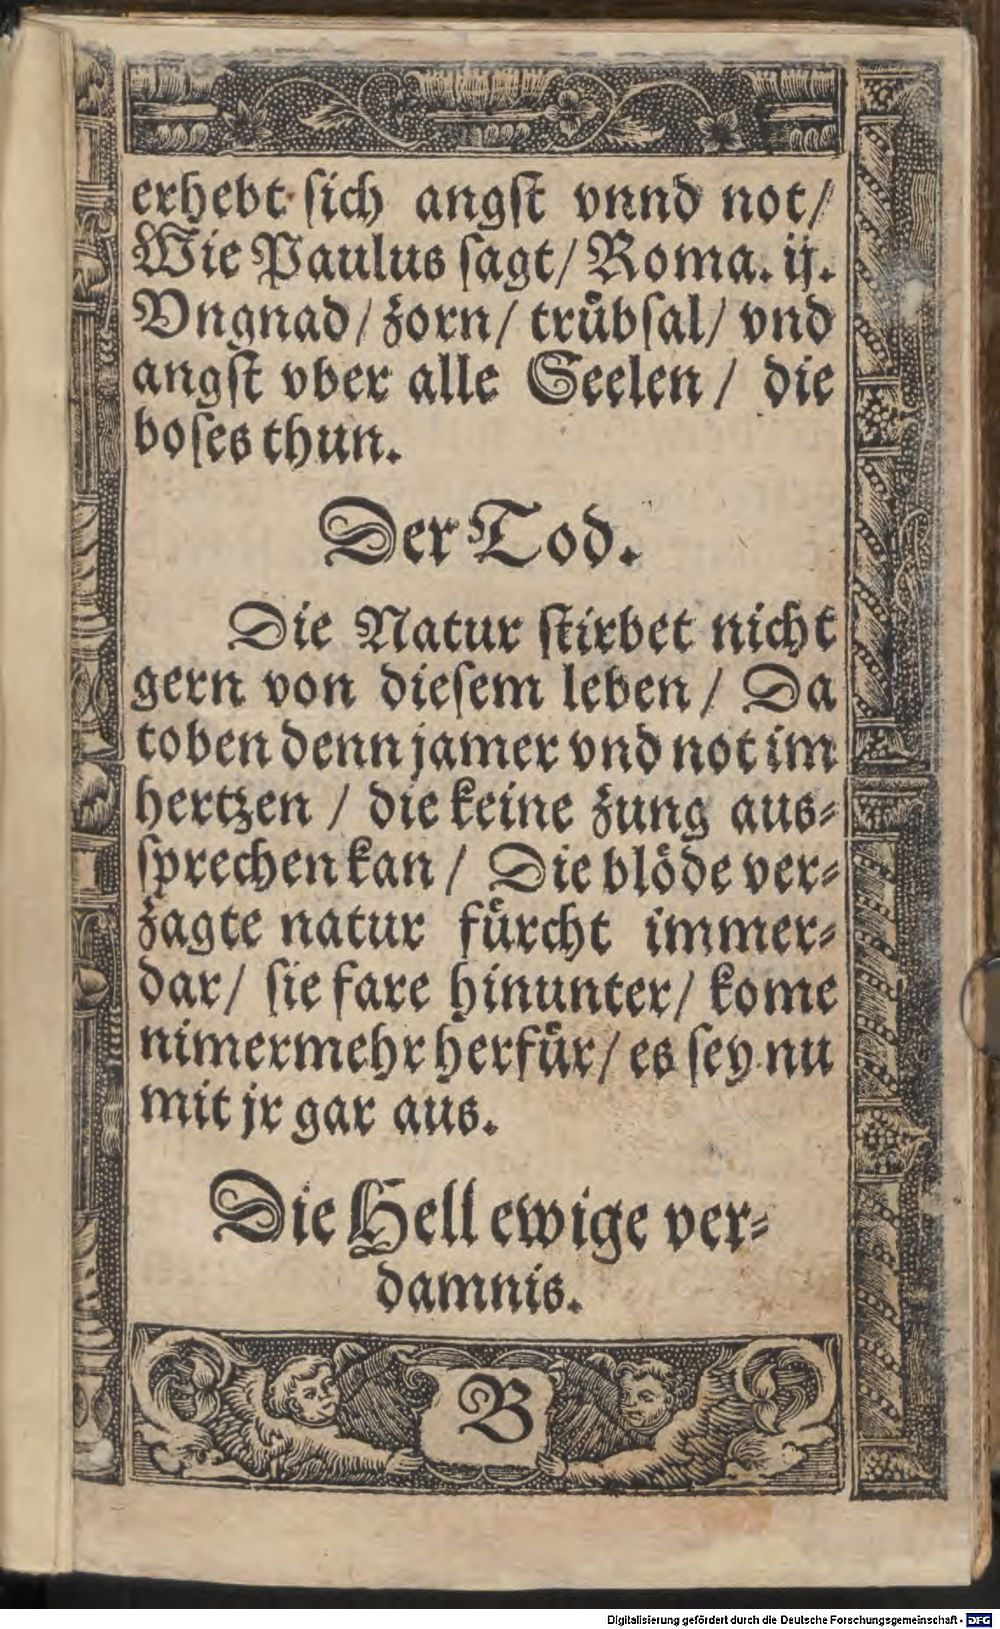 erhebt sich angst vnnd not/
Wie Paulus sagt/ Roma. ij.
Vngnad/ zorn/ truͤbsal/ vnd
angst vber alle Seelen/ die
boses thun.
Der Tod.
Die Natur stirbet nicht
gern von diesem leben/ Da
toben denn jamer vnd not im
hertzen/ die keine zung aus⸗
sprechen kan/ Die bloͤde ver⸗
zagte natur fuͤrcht immer⸗
dar/ sie fare hinunter/ kome
nimermehr herfuͤr/ es sey nu
mit jr gar aus.
Die Hell ewige ver⸗
damnis.
B
Digitalisierung gefördert durch die Deutsche Forschungsgemeinschaft - DFG